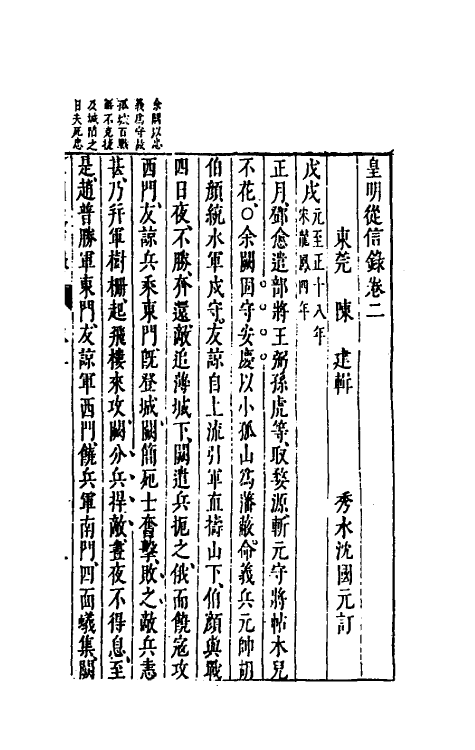 皇明從信錄卷二
東莞 陳 建輯 秀水沈國元訂
戊戌 元至正十八年 宋龍鳳四年
正月鄧愈遣部將王弼孫虎等取婺源斬元守將帖木兒
不花○余闕固守安慶以小孤山為藩蔽命義兵元帥胡
伯顏統水軍戍守友諒自上流引軍直擣山下伯顏與戰
四日夜不勝奔還敵追薄城下闕遣兵扼之俄而饒寇攻
西門友諒兵乘東門旣登城闕簡死士奮擊敗之敵兵恚
甚乃幷軍樹柵起飛樓來攻闕分兵捍敵晝夜不得息至
是趙普勝軍東門友諒軍西門饒兵軍南門四面蟻集闕
余闕以忠
義爲守故
孤城百戰
不克捷
及城陷之
日夫死忠